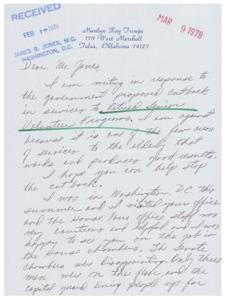 RECEIVED
FEB 17 1978
JAMES R. JONES, M.C.
WASHINGTON, D.C.
MAR 9 1978
Marilyn Ray
1119 West Marshall
Tulsa, Oklahoma 74127
Dear Mr. Jones,
I am writing in response to
the government proposed cut back
in services to Retired Senior
Volunteer Programs. I am against
because it is one of the few areas
of services to the elderly that
works and produces good results.
I hope you can help stop
the cut back.
I was in Washington, D.C. this
summer and I visited your office
and the House. Your office staff was
very courteous and helpful and I was
happy to see you on the job in
the House chambers. The Senate
chambers was disappointing. Only three
men were on the floor, and the
capitol guard lining people up for